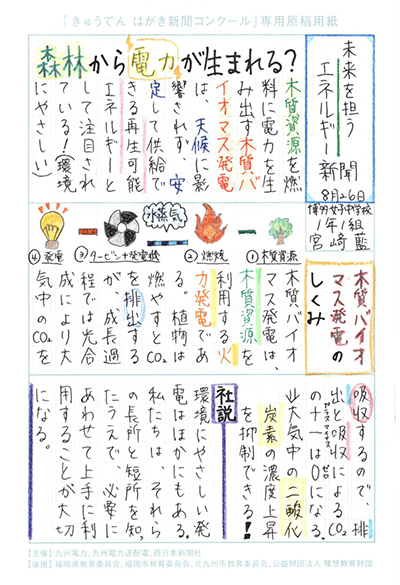 「きゅうでん はがき新聞コンクール」専用原稿用紙
未来を担う
エネルギー新聞
8月26日
博多女子中学校
1年1組
宮崎 藍
森林から電力が生まれる?
木質資源を燃
料に電力を生
み出す木質バ
イオマス発電
は、天候に影
響されず、安
定して供給で
きる再生可能
エネルギーと
して注目され
ている!(環境
にやさしい)
④発電
③タービン+発電機
水蒸気
②燃焼
①木質資源
木質バイオ
マス発電の
しくみ
木質バイオ
マス発電は、
木質資源を
利用する火
力発電であ
る。植物は
燃やすとCO₂
を排出する
が、成長過
程では光合
成により大
気中のCO₂を
吸収するので、排
出と吸収によるCO₂
の+-は0になる。
プラスマイナス
ゼロ
↓大気中の二酸化
炭素の濃度上昇
を抑制できる!
社説
環境にやさしい発
電はほかにもある。
私たちは、それぞれ
の長所と短所を知っ
たうえで、必要に
あわせて上手に利
用することが大切
になる。
【主催】九州電力、九州電力送配電、西日本新聞社
【後援】福岡県教育委員会、福岡市教育委員会、北九州市教育委員会、公益財団法人 理想教育財団